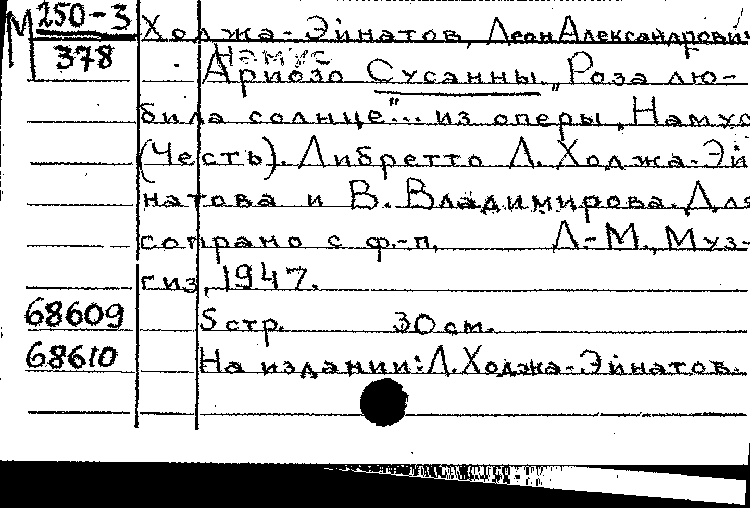 М 250-3 Ходжа-Эйнатов, Леон Александрович
378 Намус
Ариозо Сусанны „Роза лю-
била солнце"... из оперы „Намус
(Честь). Либретто Л. Ходжа-Эй
натова и В. Владимирова. Для
сопрано с ф.-п. Л-М., Муз-
гиз, 1947.
68609 5 стр. 30 см.
68610 На издании: Л. Ходжа-Эйнатов.